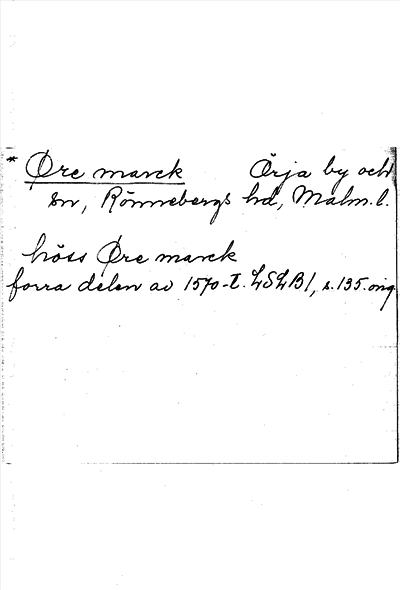 * Øre marck Örja by och
sn, Rönnebergs hd, Malm. l.
hōss Øre marck
forra delen av 1570-t. LSLB1, s. 135. orig